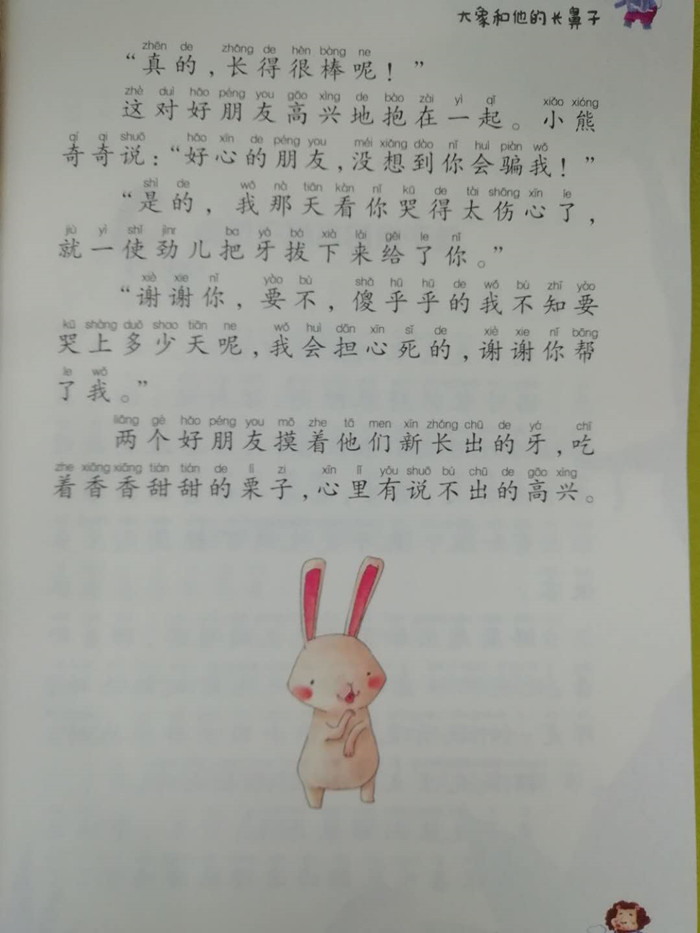 大象和他的长鼻子
zhēn de zhǎng de hěn bàng ne
“真的，长得很棒呢！”
zhè duì hǎo péng you gāo xìng de bào zài yì qǐ xiǎo xióng
这对好朋友高兴地抱在一起。小熊
qí qi shuō hǎo xīn de péng you méi xiǎng dào nǐ huì piàn wǒ
奇奇说：“好心的朋友，没想到你会骗我！”
shì de wǒ nà tiān kàn nǐ kū de tài shāng xīn le
“是的，我那天看你哭得太伤心了，
jiù yì shǐ jìnr bǎ yá bá xià lái gěi le nǐ
就一使劲儿把牙拔下来给了你。”
xiè xie nǐ yào bù shǎ hū hū de wǒ bù zhī yào
“谢谢你，要不，傻乎乎的我不知要
kū shàng duō shao tiān ne wǒ huì dān xīn sǐ de xiè xie nǐ bāng
哭上多少天呢，我会担心死的，谢谢你帮
le wǒ
了我。”
liǎng gè hǎo péng you mō zhe tā men xīn zhǎng chū de yá chī
两个好朋友摸着他们新长出的牙，吃
zhe xiāng xiāng tián tián de lì zi xīn lǐ yǒu shuō bù chū de gāo xìng
着香香甜甜的栗子，心里有说不出的高兴。